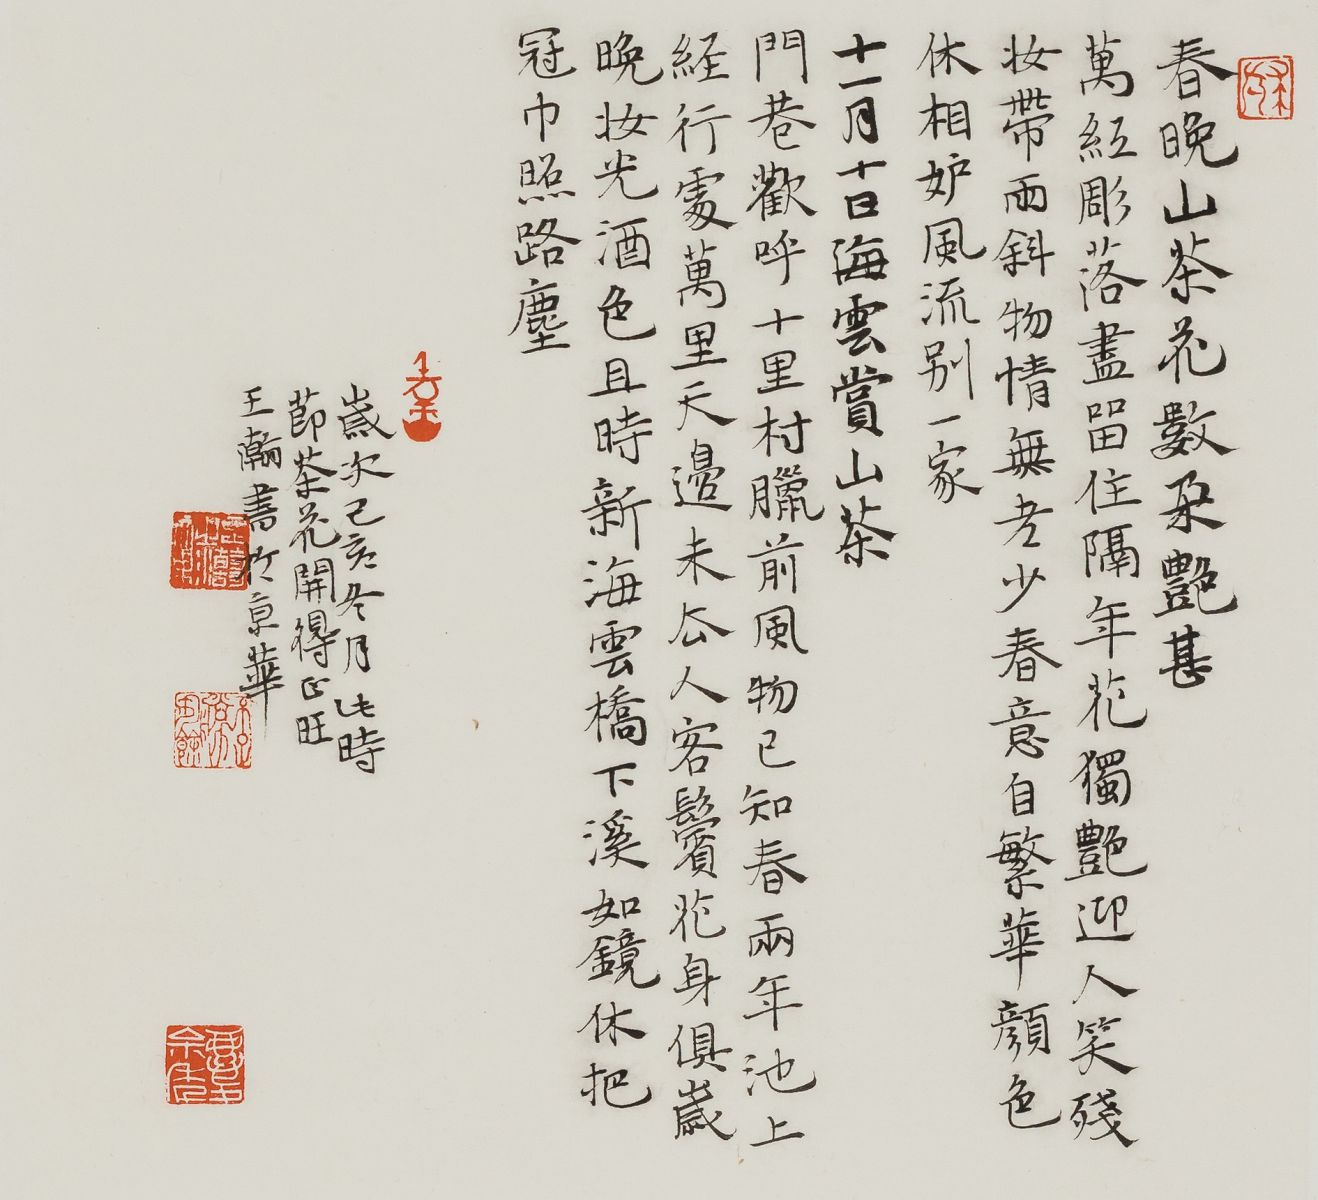 春晚山茶花數朵艷甚
萬紅彫落盡留住隔年花獨艷迎人笑殘
妝帶雨斜物情無老少春意自繁華顏色
休相妒風流别一家
十一月十日海雲賞山茶
門巷歡呼十里村臘前風物已知春兩年池上
経行處萬里天邊未去人客鬢花身俱歲
晚妝光酒色且時新海雲橋下溪如鏡休把
冠巾照路塵
歲次己亥冬月此時
節茶花開得正旺
王瀚書於京華